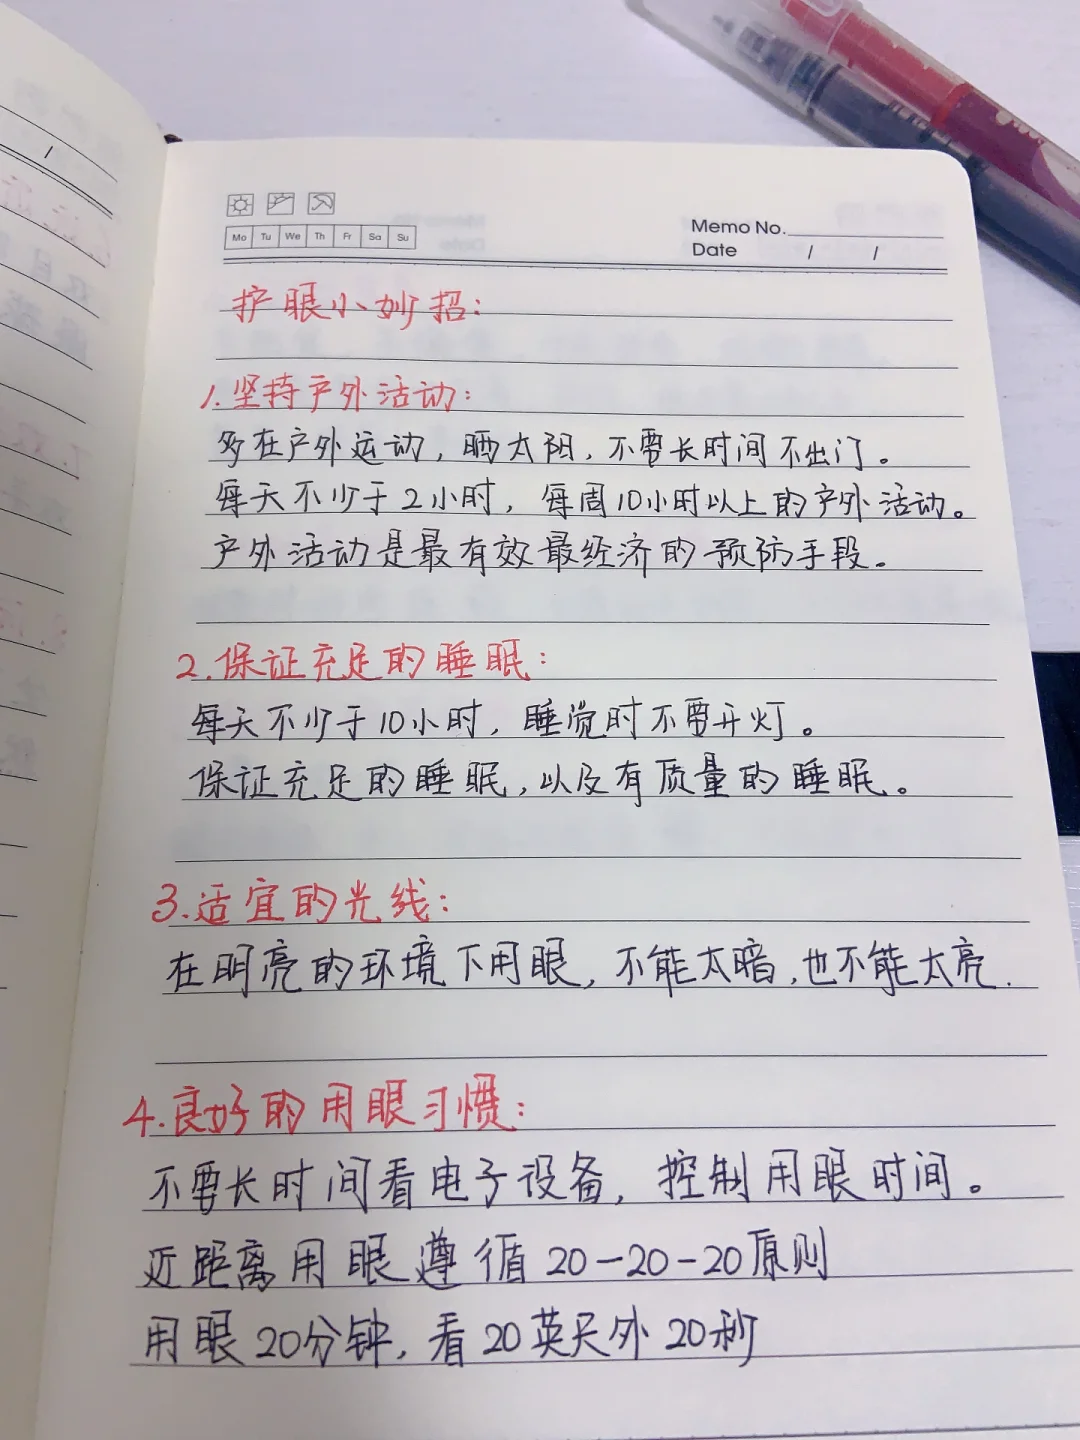 Mo Tu We Th Fr Sa Su
Memo No.
Date / /
护眼小妙招:
1.坚持户外活动:
多在户外运动,晒太阳,不要长时间不出门。
每天不少于2小时,每周10小时以上的户外活动。
户外活动是最有效最经济的预防手段。
2.保证充足的睡眠:
每天不少于10小时,睡觉时不要开灯。
保证充足的睡眠,以及有质量的睡眠。
3.适宜的光线:
在明亮的环境下用眼,不能太暗,也不能太亮.
4.良好的用眼习惯:
不要长时间看电子设备,控制用眼时间。
近距离用眼遵循20-20-20原则
用眼20分钟,看20英尺外20秒